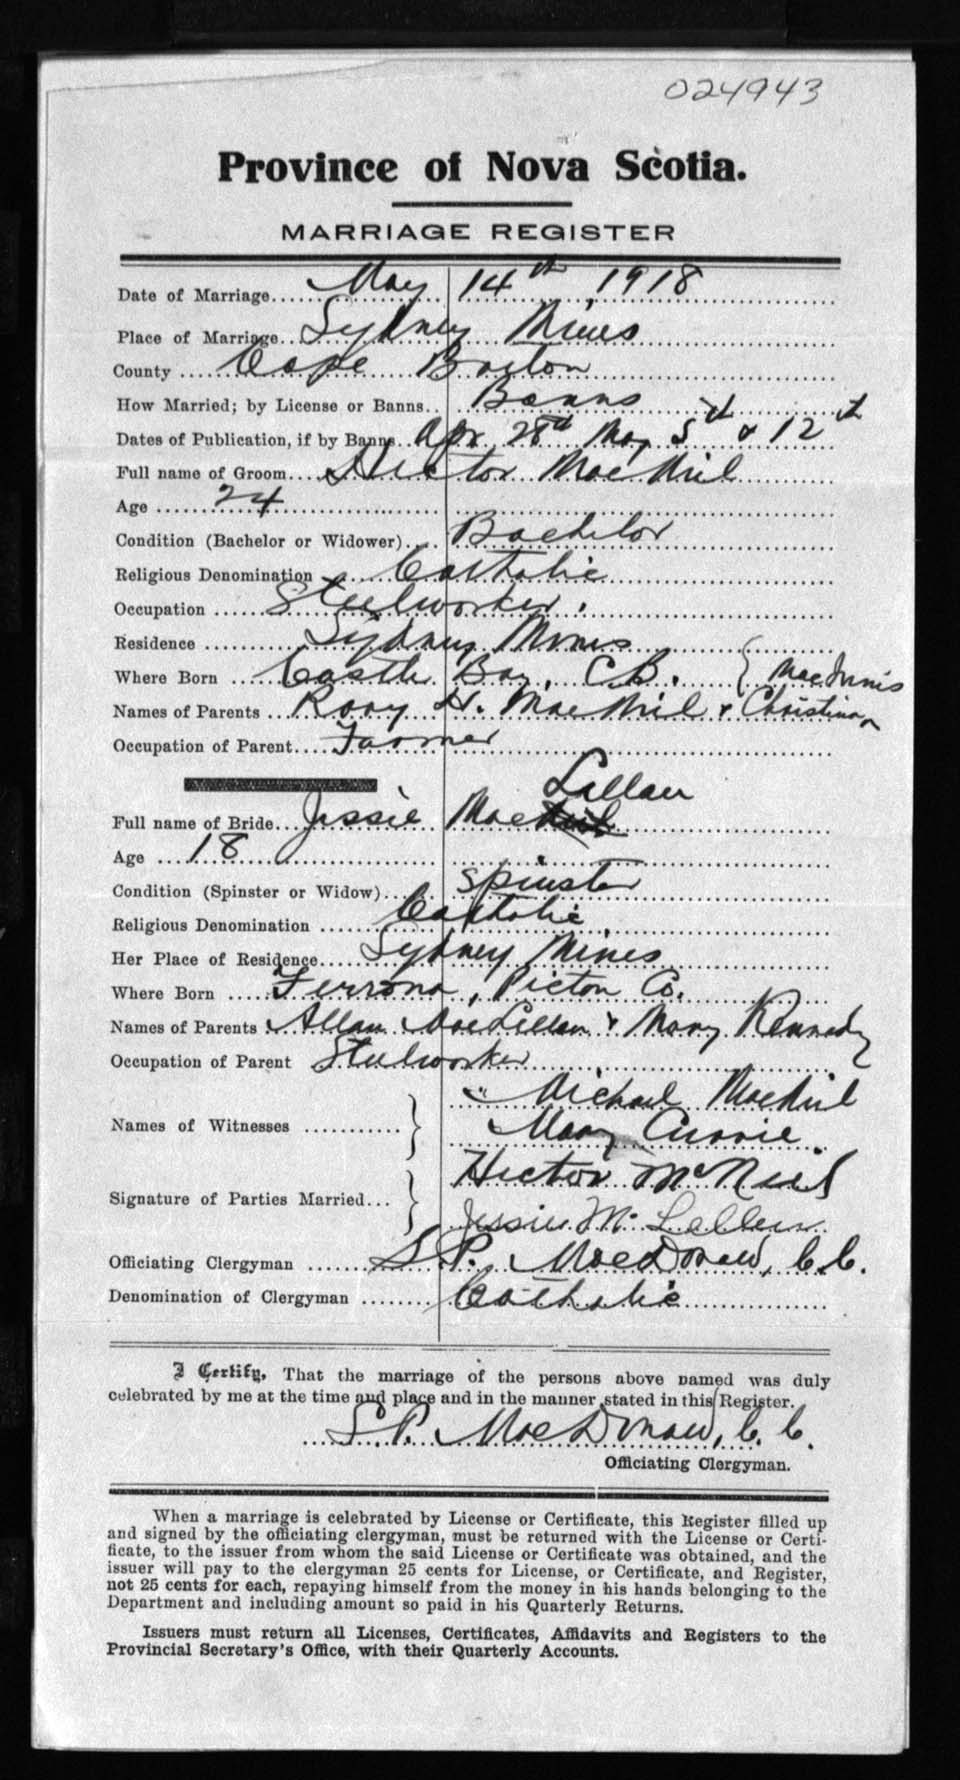 024943
Province of Nova Scotia.
MARRIAGE REGISTER
Date of Marriage... May 14th, 1918
Place of Marriage... Sydney Mines
County ..... Cape Breton
How Married; by License or Banns.. Banns
Dates of Publication, if by Banns.. Apr 28th May 5th & 12th
Full name of Groom.... Hector MacNeil
Age ...... 24
Condition (Bachelor or Widower).... Bachelor
Religious Denomination Catholic
Occupation ...... Steelworker.
Residence ....... Sydney Mines
Where Born .... Castle Bay, C.B. { MacInnis
Names of Parents .. Rory H. MacNeil & Christina
Occupation of Parent.... Farmer
Lellan
Full name of Bride... Jessie MacNeil
Age .... 18
Condition (Spinster or Widow).... Spinster
Religious Denomination ...... Catholic
Her Place of Residence.... Sydney Mines
Where Born ..... Ferrona, Pictou Co.
Names of Parents . Allan MacLellan & Mary Kennedy
Occupation of Parent Steelworker
Michael MacNeil
Names of Witnesses ........... }
Mary Currie
Hector McNeil
Signature of Parties Married... }
Jessie McLellan
Officiating Clergyman ...... S.P. MacDonald, C.C.
Denomination of Clergyman ........ Catholic
I Certify, That the marriage of the persons above named was duly
celebrated by me at the time and place and in the manner stated in this Register.
S.P. MacDonald, C.C.
Officiating Clergyman.
When a marriage is celebrated by License or Certificate, this Register filled up
and signed by the officiating clergyman, must be returned with the License or Certi-
ficate, to the issuer from whom the said License or Certificate was obtained, and the
issuer will pay to the clergyman 25 cents for License, or Certificate, and Register,
not 25 cents for each, repaying himself from the money in his hands belonging to the
Department and including amount so paid in his Quarterly Returns.
Issuers must return all Licenses, Certificates, Affidavits and Registers to the
Provincial Secretary's Office, with their Quarterly Accounts.